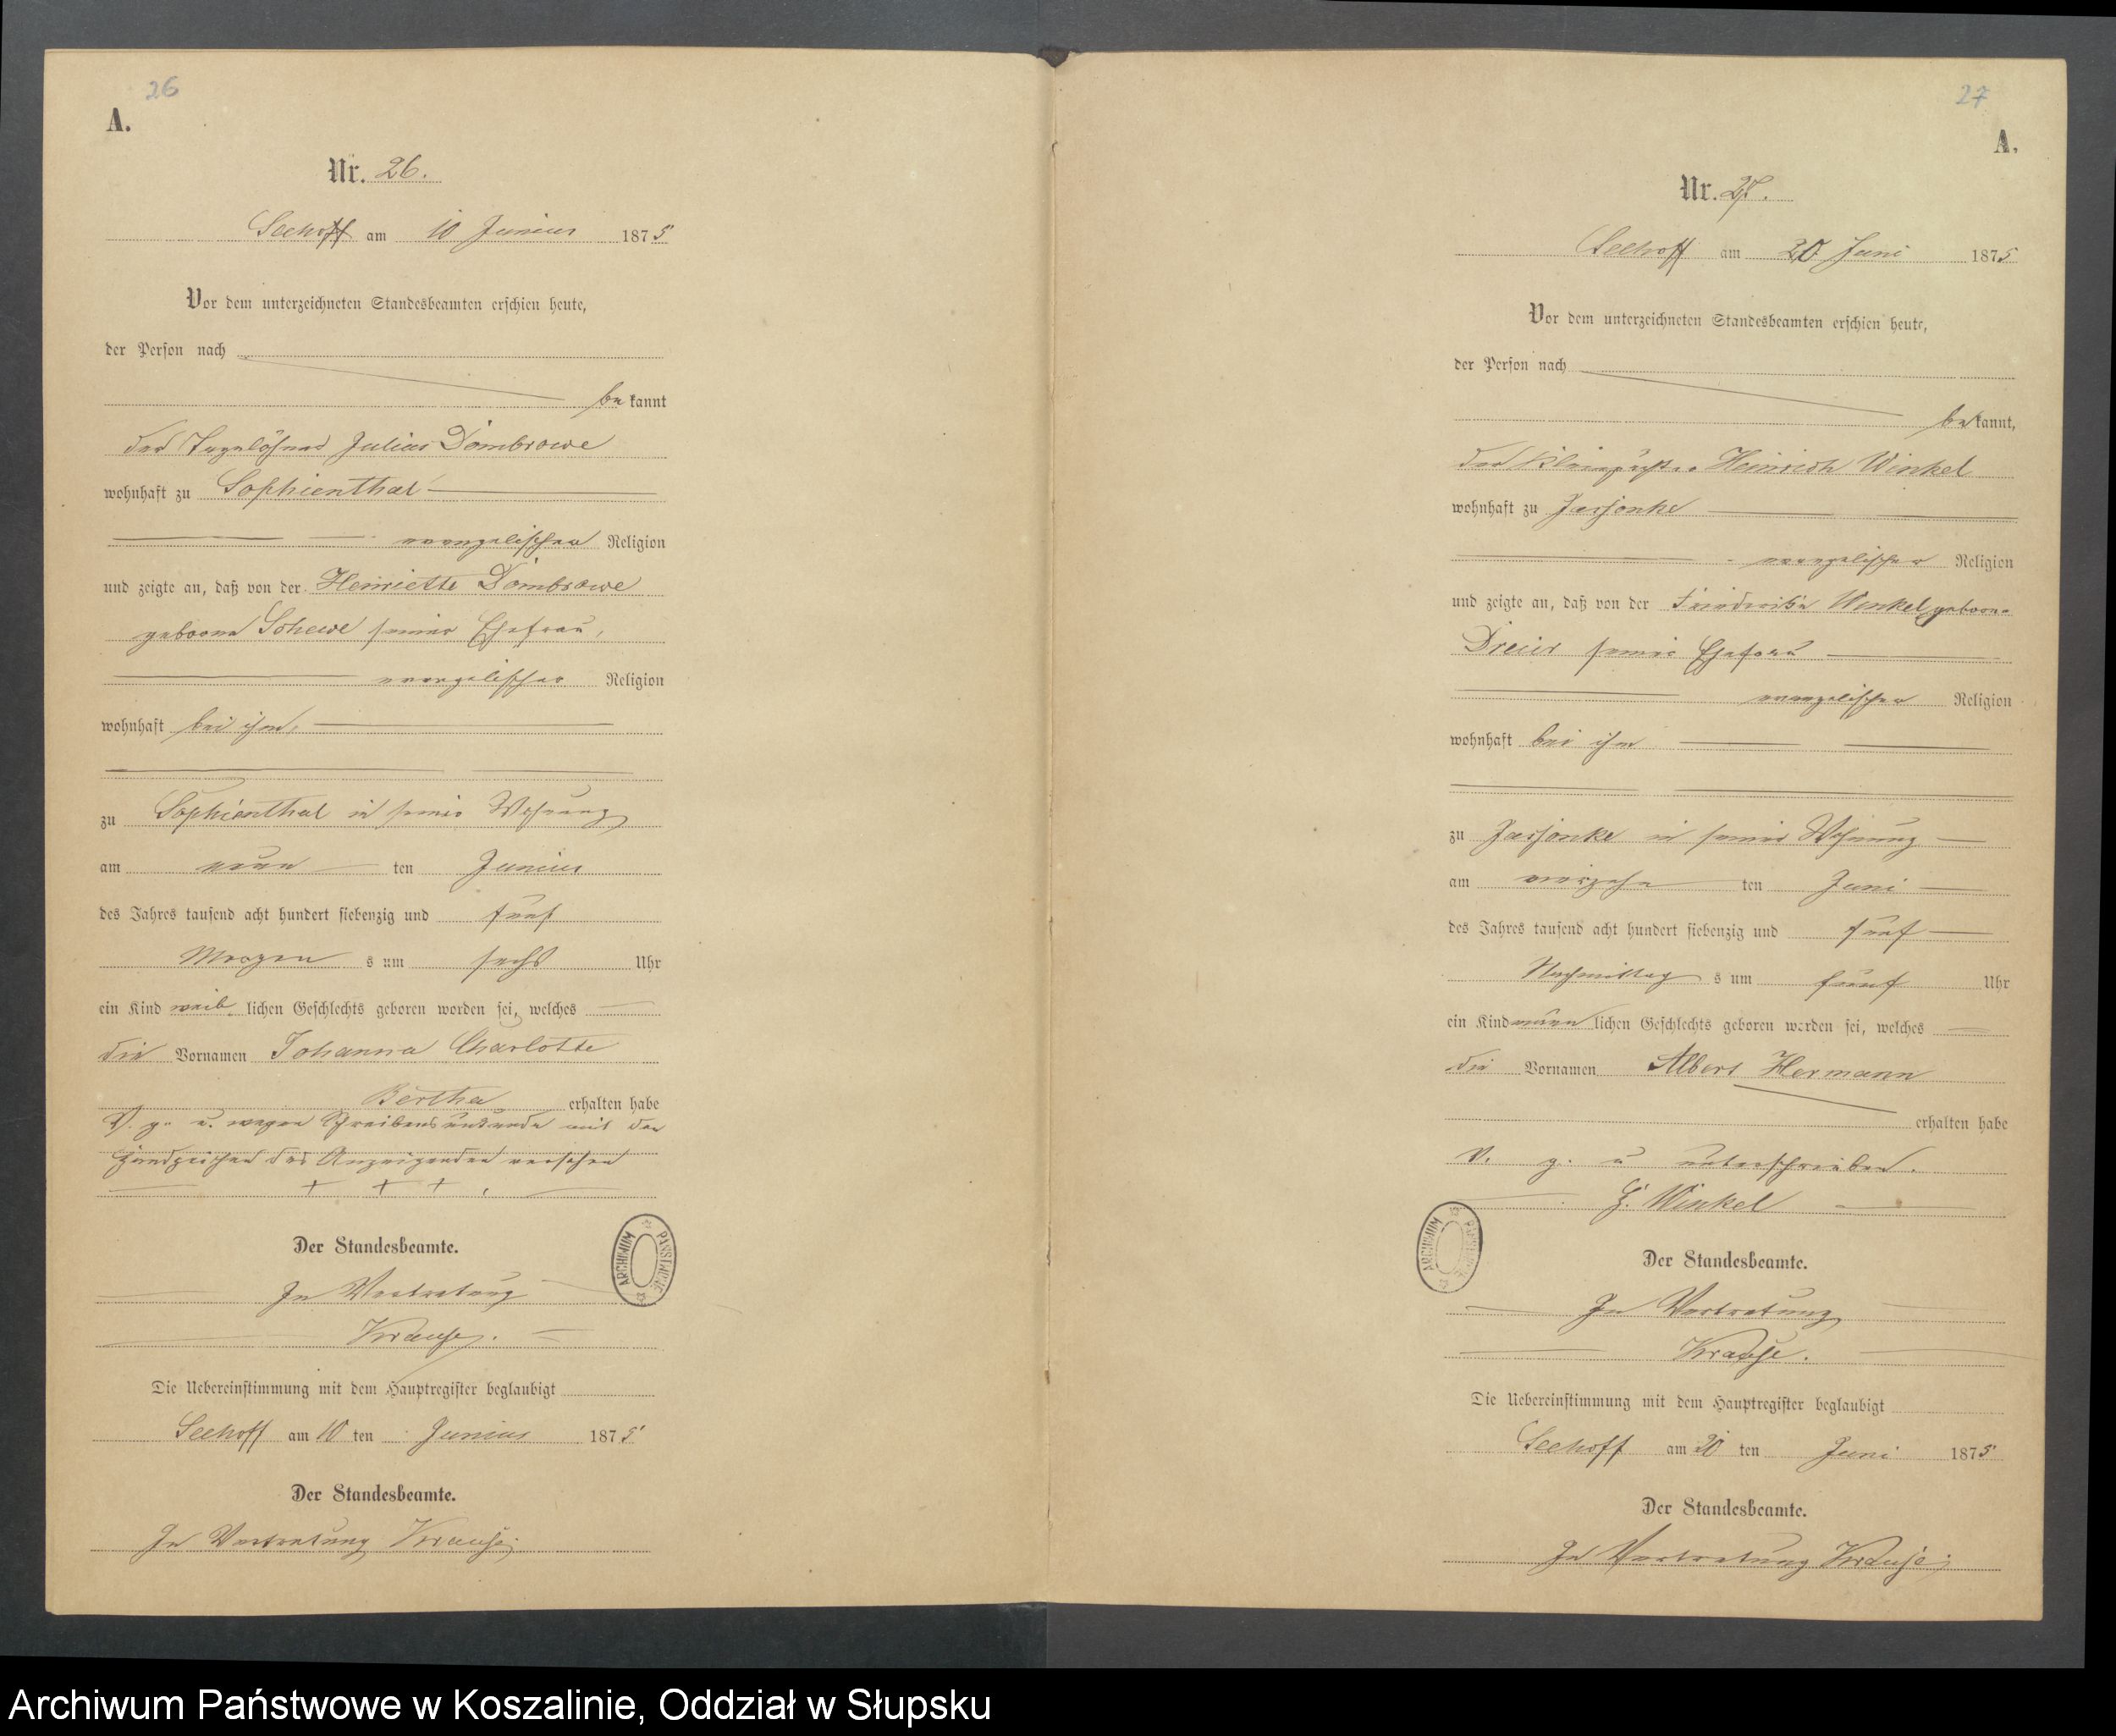 26
A.
Nr. 26.
Seehoff am 10 Junius 1875
Vor dem unterzeichneten Standesbeamten erschien heute,
der Person nach
be kannt
der Tagelöhner Julius Dombrowe
wohnhaft zu Sophienthal
evangelischer Religion
und zeigte an, daß von der Henriette Dombrowe
geborne Schewe seiner Ehefrau,
evangelischer Religion
wohnhaft bei ihm,
zu Sophienthal in seiner Wohnung
am neun ten Junius
des Jahres tausend acht hundert siebenzig und fünf
Morgen s um sechs Uhr
ein Kind weib lichen Geschlechts geboren worden sei, welches
die Vornamen Johanna Charlotte
Bertha erhalten habe
V. g. u. wegen Schreibensunkunde mit den
Handzeichen des Anzeigenden versehen
+ + +.
Der Standesbeamte.
In Vertretung
Krause.
Die Uebereinstimmung mit dem Hauptregister beglaubigt
Seehoff am 10 ten Junius 1875
Der Standesbeamte.
In Vertretung Krause.
ARCHIWUM PAŃSTWOWE
27
A.
Nr. 27.
Seehoff am 20 Juni 1875
Vor dem unterzeichneten Standesbeamten erschien heute,
der Person nach
be kannt,
der Kleinpächter Heinrich Winkel
wohnhaft zu Jassonke
evangelischer Religion
und zeigte an, daß von der Friedericke Winkel geborne
Dreier seiner Ehefrau
evangelischer Religion
wohnhaft bei ihm
zu Jassonke in seiner Wohnung
am vierzehn ten Juni
des Jahres tausend acht hundert siebenzig und fünf
Nachmittag s um fünf Uhr
ein Kind männ lichen Geschlechts geboren worden sei, welches
die Vornamen Albert Hermann
erhalten habe
V. g. u unterschrieben.
H. Winkel
Der Standesbeamte.
In Vertretung
Krause.
Die Uebereinstimmung mit dem Hauptregister beglaubigt
Seehoff am 20 ten Juni 1875
Der Standesbeamte.
In Vertretung Krause.
ARCHIWUM PAŃSTWOWE
Archiwum Państwowe w Koszalinie, Oddział w Słupsku